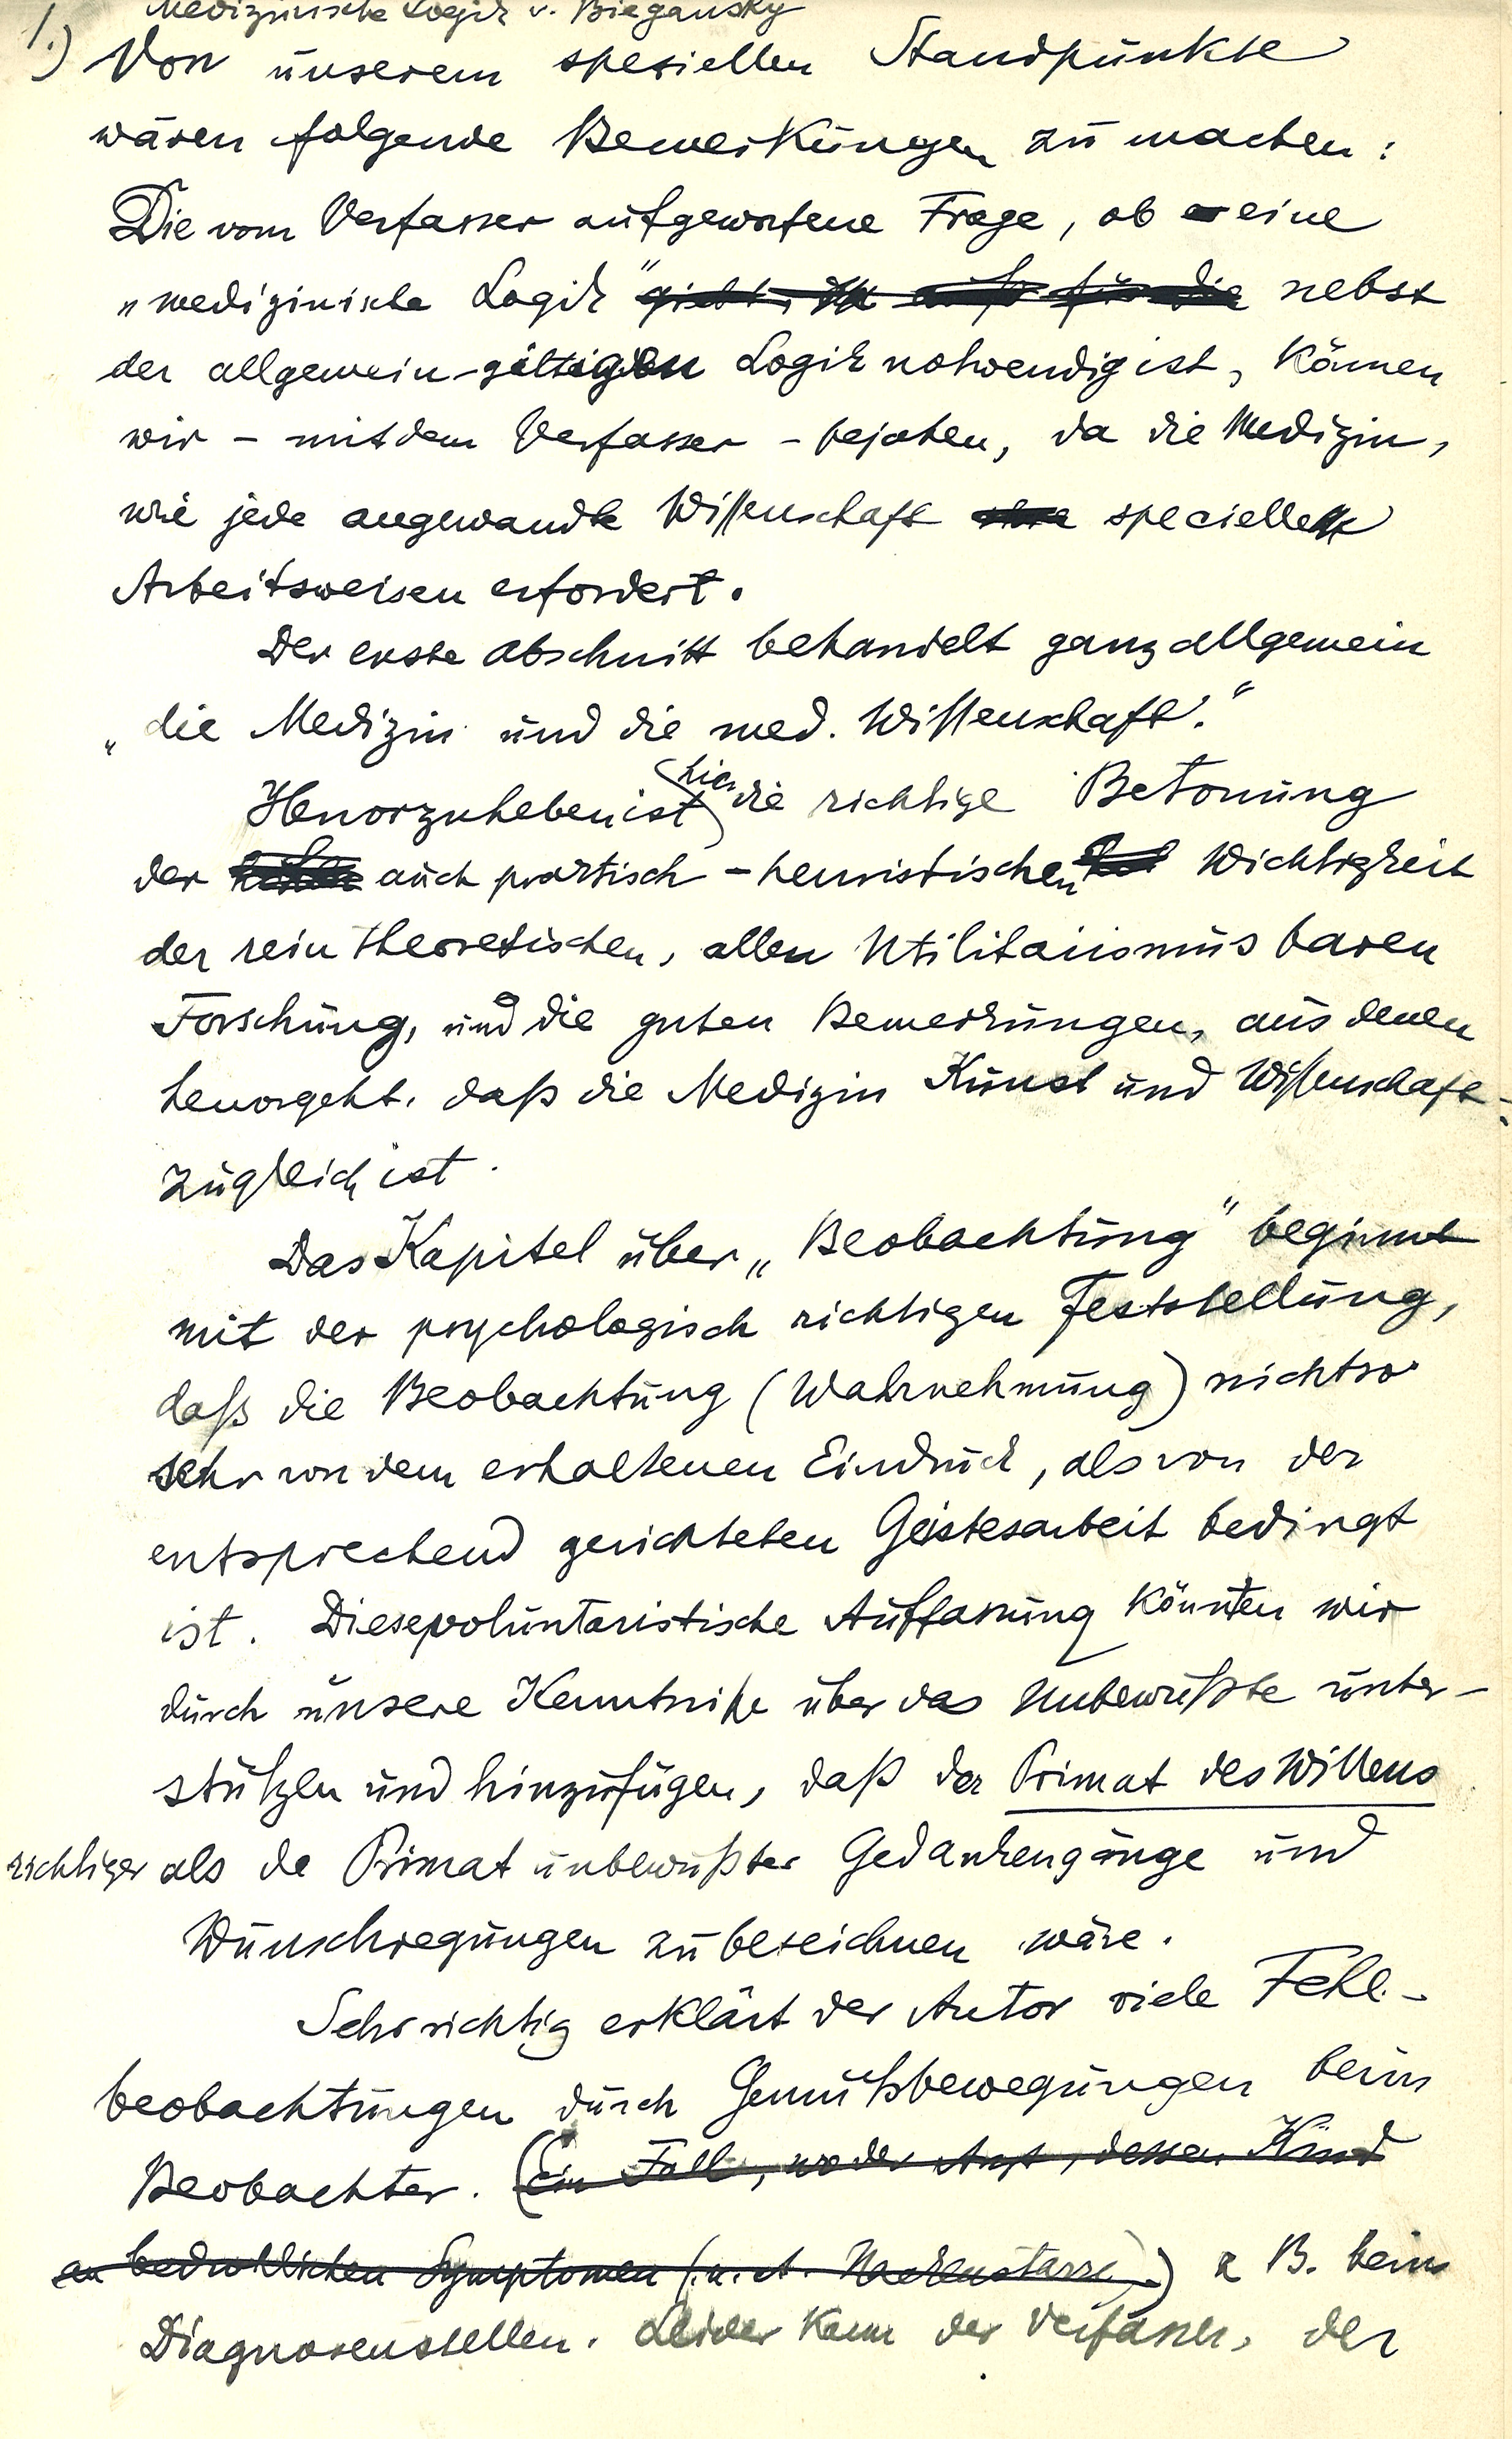 Medizinische Logik v. Biegansky
1.) Von unserem speziellen Standpunkte
wären folgende Bemerkungen zu machen:
Die vom Verfasser aufgeworfene Frage, ob eine
„medizinische Logik" nebst
der allgemein-giltigen Logik notwendig ist, können
wir – mit dem Verfasser – bejahen, da die Medizin,
wie jede angewandte Wissenschaft specielle
Arbeitsweisen erfordert.
Der erste Abschnitt behandelt ganz allgemein
„die Medizin und die med. Wissenschaft."
Hervorzuheben ist hier die richtige Betonung
der auch praktisch-heuristischen Wichtigkeit
der rein theoretischen, allen Utilitarismus baren
Forschung, und die guten Bemerkungen, aus denen
hervorgeht, daß die Medizin Kunst und Wissenschaft
zugleich ist.
Das Kapitel über „Beobachtung" beginnt
mit der psychologisch richtigen Feststellung,
daß die Beobachtung (Wahrnehmung) nicht so
sehr von dem erhaltenen Eindruck, als von der
entsprechend gerichteten Geistesarbeit bedingt
ist. Diese voluntaristische Auffassung könnten wir
durch unsere Kenntniße über das Unbewußte unter-
stützen und hinzufügen, daß der Primat des Willens
richtiger als de Primat unbewußter Gedankengänge und
Wunschregungen zu bezeichnen wäre.
Sehr richtig erklärt der Autor viele Fehl-
beobachtungen durch Gemütsbewegungen beim
Beobachter. (Ein Fall, wo der Arzt, dessen Kind
an bedrohlichen Symptomen (u. A. Nackenstarre,) z B. beim
Diagnosenstellen. Leider kann der Verfasser, der